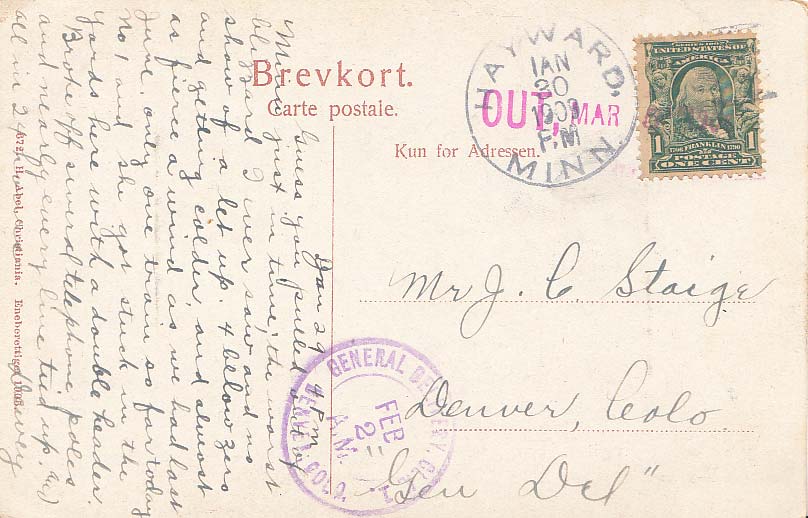 Brevkort.
Carte postale.
Kun for Adressen.
HAYWARD,
JAN
30
1909
P.M
MINN.
OUT, MAR
SERIES 1902
UNITED STATES OF
AMERICA
1 1706 FRANKLIN 1790 1
POSTAGE
ONE CENT
Jan 29 4 P.m.
Guess you pulled out of
Minn just in time, the worst
blizzard I ever saw, and no
show of a let up. 4 below zero
and getting colder, and almost
as fierce a wind as we had last
June. only one train so far today
No 1 and she got stuck in the
yards here with a double header.
Broke off several telephone poles
and nearly every line tied up.
all in 24 hr
Dewey
Mr J. C. Staige
Denver, Colo.
Gen Del"
GENERAL DELIVERY,
DENVER, COLO.
FEB
2
A.M.
H. Abel, Christiania. Eneberettiget